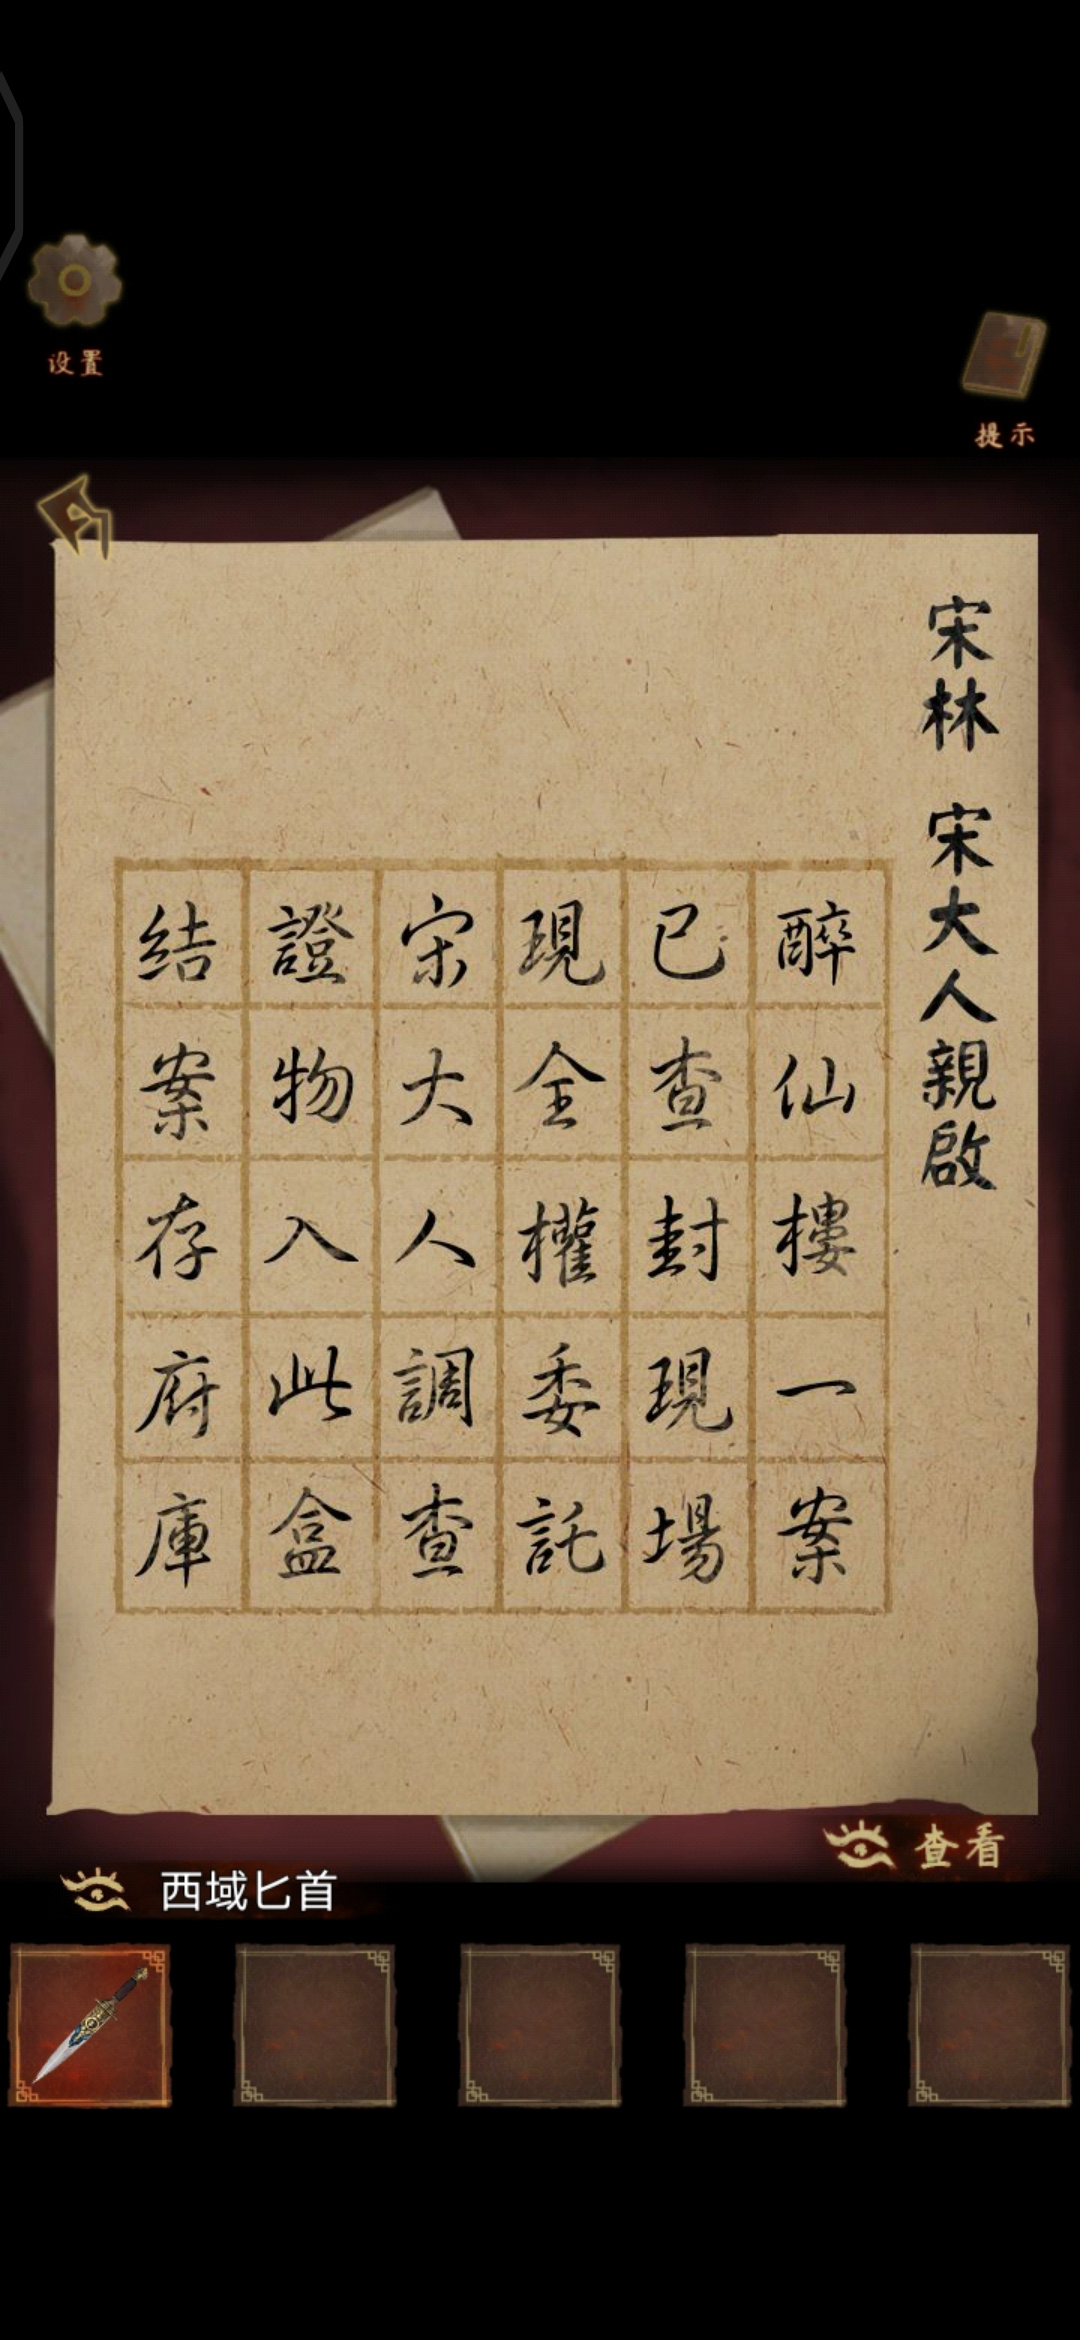 设置
提示
宋林 宋大人親啟
醉仙樓一案
已查封現場
現全權委託
宋大人調查
證物入此盒
结案存府庫
查看
西域匕首